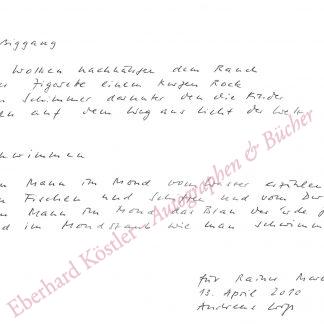 ßiggang
Wolken nachhängen dem Rauch
Zigarette einem kurzen Rock
Schimmer darunter den die Kinder
auf dem Weg ans Licht der Welt
hwimmen
n Mann im Mond vom Wasser erzählen
n Fischen und Schiffen und vom Dur
n Mann im Mond das Blau der Erde
d im Mondstaub wie man schwimm
für Rainer
13. April 2010
Andreas
Eberhard Köstler - Autographen & Bücher